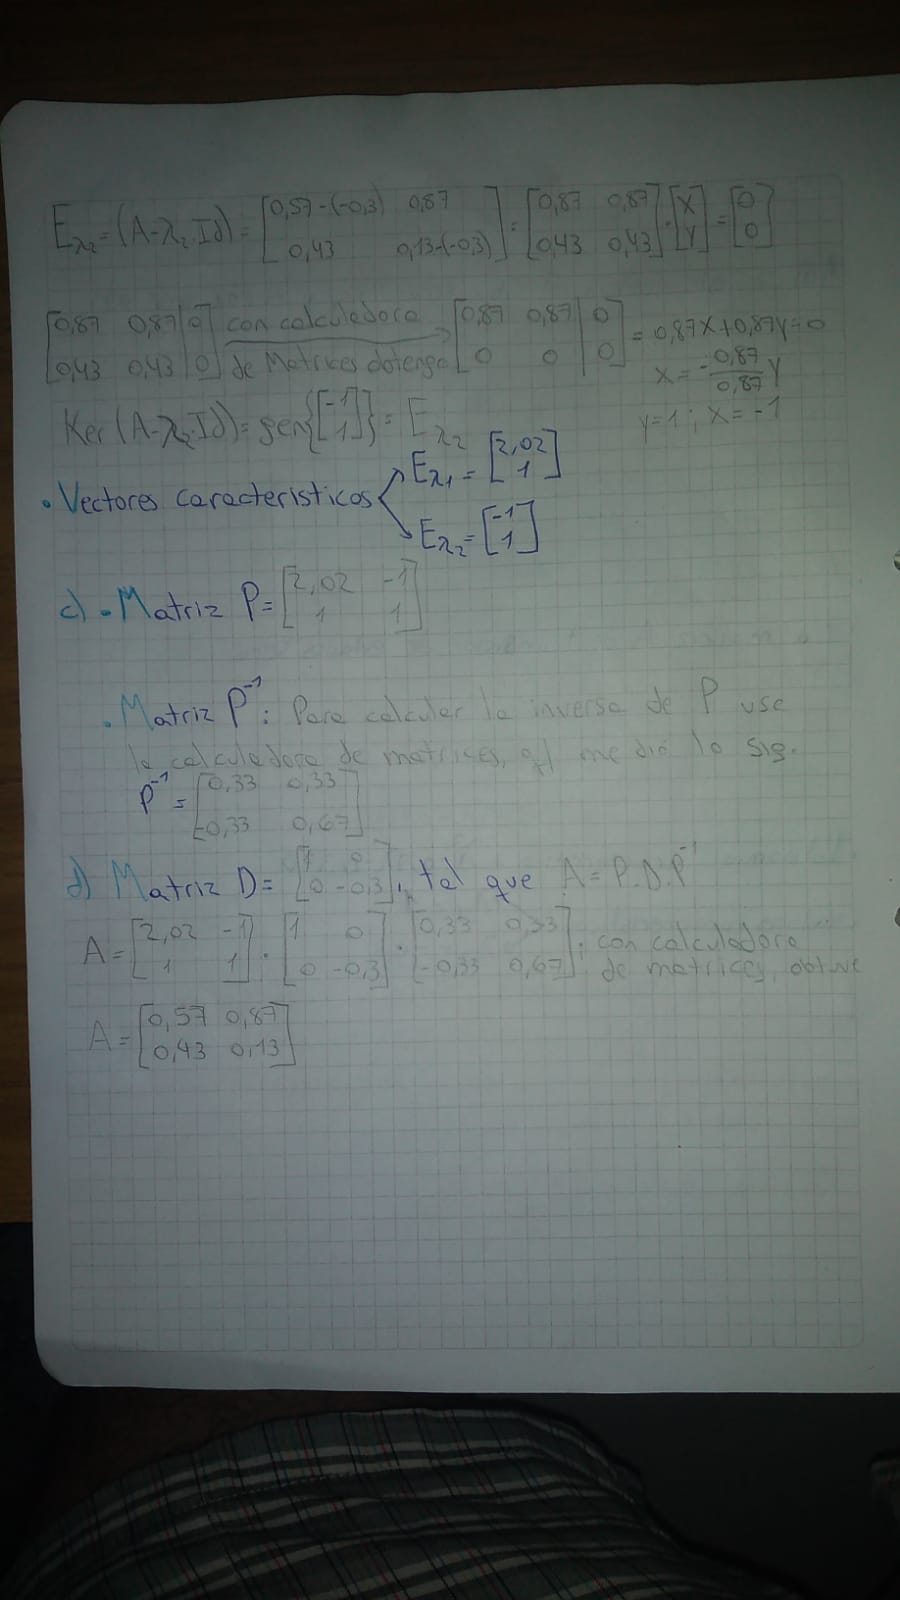 E_λ₂=(A-λ₂.Id)= [0,57-(-0,3) 0,87; 0,43 0,13-(-0,3)] = [0,87 0,87; 0,43 0,43].[X; Y]=[0; 0]
[0,87 0,87|0; 0,43 0,43|0] con calculadora de Matrices obtengo [0,87 0,87|0; 0 0|0] = 0,87X+0,87Y=0
X=-0,87/0,87 Y
Ker(A-λ₂.Id)=gen{[-1; 1]}=E_λ₂ Y=1; X=-1
• Vectores característicos E_λ₁=[2,02; 1]
E_λ₂=[-1; 1]
c) • Matriz P=[2,02 -1; 1 1]
• Matriz P⁻¹: Para calcular la inversa de P use
la calculadora de matrices, me dio lo sig.
P⁻¹=[0,33 0,33; -0,33 0,67]
d) Matriz D=[1 0; 0 -0,3], tal que A=P.D.P⁻¹
A=[2,02 -1; 1 1].[1 0; 0 -0,3].[0,33 0,33; -0,33 0,67]; con calculadora
de matrices, obtuve
A=[0,57 0,87; 0,43 0,13]